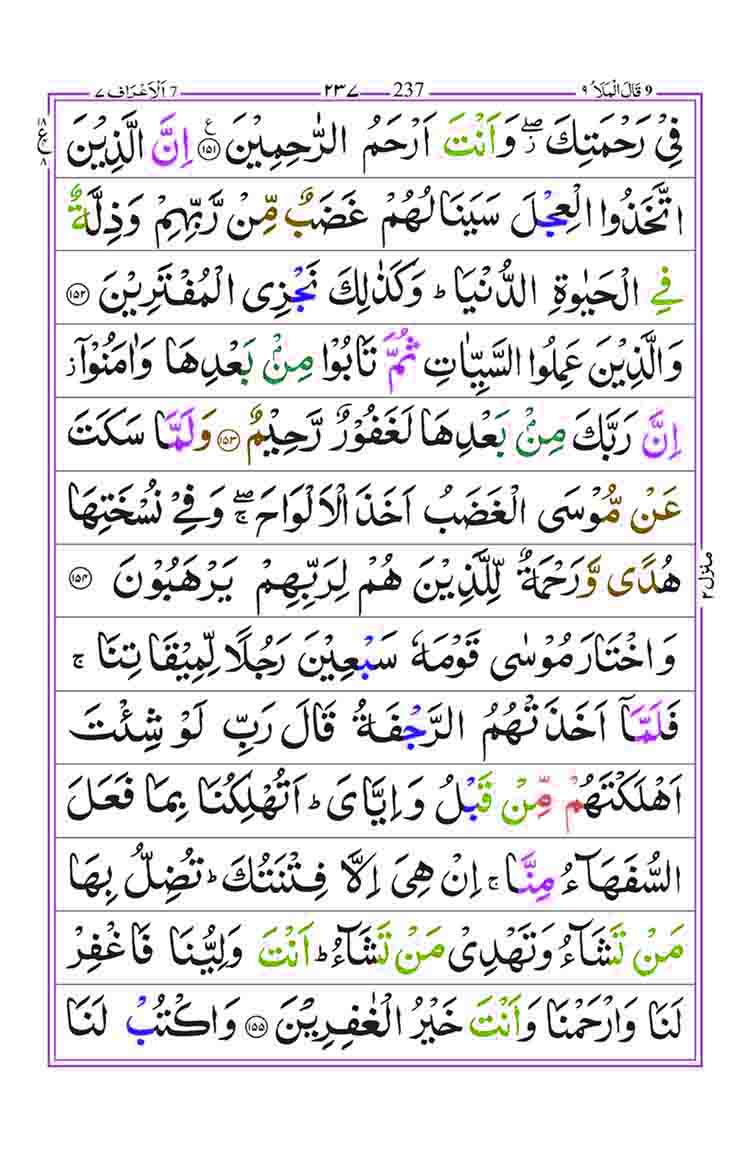 9 قَالَ الْمَلَاُ ٩ 237 ٢٣٧ 7 اَلْاَعْرَاف ٧
فِىْ رَحْمَتِكَ ۖ وَاَنْتَ اَرْحَمُ الرّٰحِمِيْنَ ﴿۱۵۱﴾ اِنَّ الَّذِيْنَ
اتَّخَذُوا الْعِجْلَ سَيَنَالُهُمْ غَضَبٌ مِّنْ رَّبِّهِمْ وَذِلَّةٌ
فِى الْحَيٰوةِ الدُّنْيَا ؕ وَكَذٰلِكَ نَجْزِى الْمُفْتَرِيْنَ ﴿۱۵۲﴾
وَالَّذِيْنَ عَمِلُوا السَّيِّاٰتِ ثُمَّ تَابُوْا مِنْۢ بَعْدِهَا وَاٰمَنُوْۤا ز
اِنَّ رَبَّكَ مِنْۢ بَعْدِهَا لَغَفُوْرٌ رَّحِيْمٌ ﴿۱۵۳﴾ وَلَمَّا سَكَتَ
عَنْ مُّوْسَى الْغَضَبُ اَخَذَ الْاَلْوَاحَ ۖۚ وَفِىْ نُسْخَتِهَا
هُدًى وَّرَحْمَةٌ لِّلَّذِيْنَ هُمْ لِرَبِّهِمْ يَرْهَبُوْنَ ﴿۱۵۴﴾
وَاخْتَارَ مُوْسٰى قَوْمَهٗ سَبْعِيْنَ رَجُلًا لِّمِيْقَاتِنَا ۚ
فَلَمَّاۤ اَخَذَتْهُمُ الرَّجْفَةُ قَالَ رَبِّ لَوْ شِئْتَ
اَهْلَكْتَهُمْ مِّنْ قَبْلُ وَاِيَّاىَ ؕ اَتُهْلِكُنَا بِمَا فَعَلَ
السُّفَهَآءُ مِنَّا ۚ اِنْ هِىَ اِلَّا فِتْنَتُكَ ؕ تُضِلُّ بِهَا
مَنْ تَشَآءُ وَتَهْدِىْ مَنْ تَشَآءُ ؕ اَنْتَ وَلِيُّنَا فَاغْفِرْ
لَنَا وَارْحَمْنَا وَاَنْتَ خَيْرُ الْغٰفِرِيْنَ ﴿۱۵۵﴾ وَاكْتُبْ لَنَا
ع ۱۸ ۸
منزل ٢